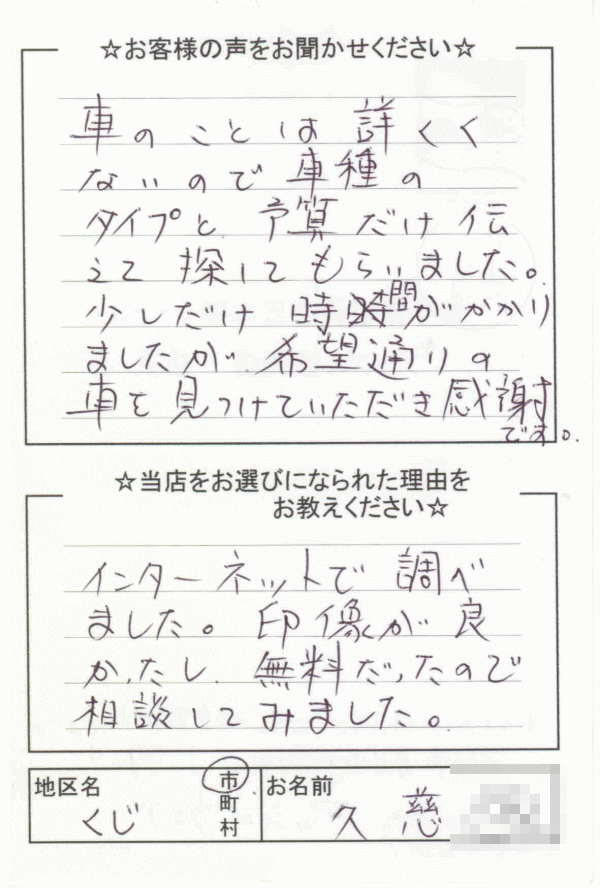 ☆お客様の声をお聞かせください☆
車のことは詳しく
ないので車種の
タイプと、予算だけ伝
えて探してもらいました。
少しだけ時間がかかり
ましたが、希望通りの
車を見つけていただき感謝
です。
☆当店をお選びになられた理由を
お教えください☆
インターネットで調べ
ました。印像が良
かったし、無料だったので
相談してみました。
地区名
くじ
市
町
村
お名前
久慈